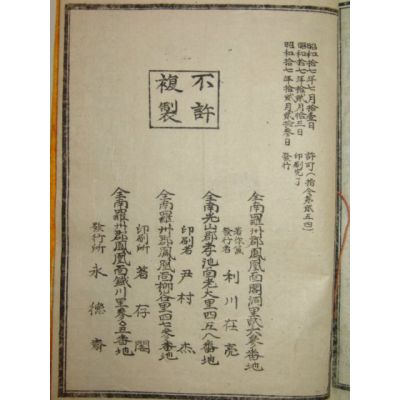 昭和拾七年七月拾壹日 許可(指令第貳五四)
昭和拾七年拾貳月拾三日 印刷完了
昭和拾七年拾貳月貳拾參日 發行
不許
複製
全南羅州郡鳳凰面閣洞里貳六參番地
發行者 利川在亮
全南光山郡孝池面老大里四五八番地
印刷者 尹村杰
全南羅州郡鳳凰面柳谷里四七參番地
印刷所 著存閣
全南羅州郡鳳凰面鐵川里參五番地
發行所 永德齋